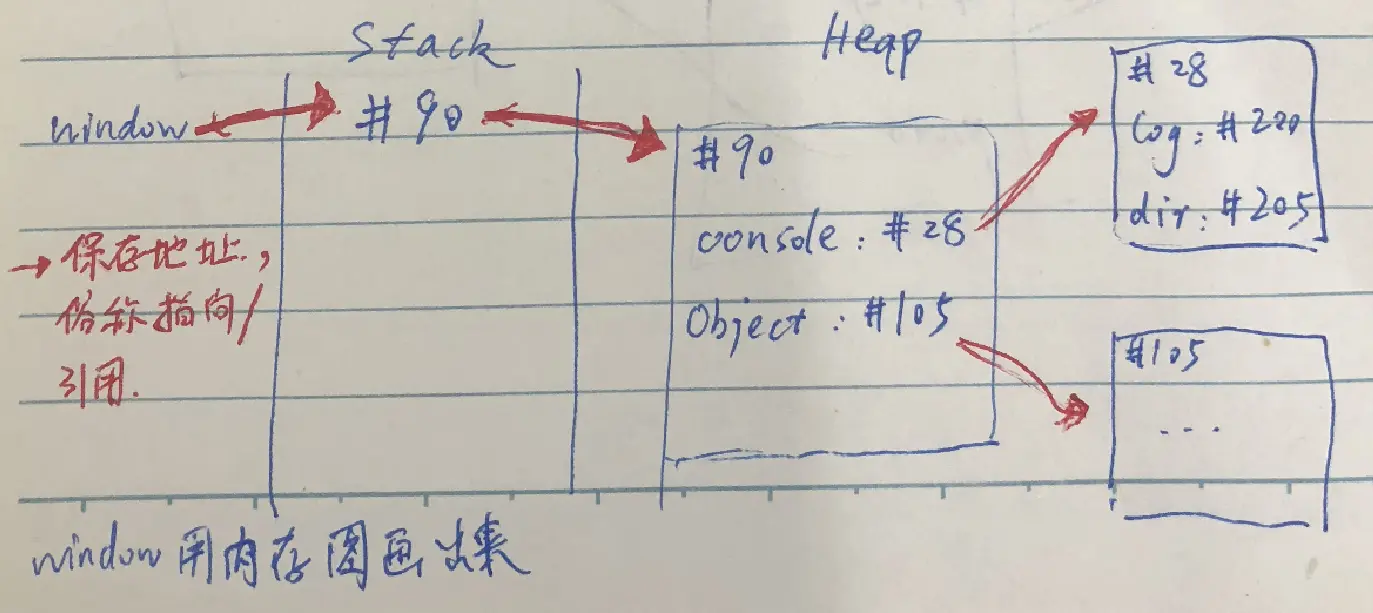 Stack
Heap
window
#90
#90
console: #28
Object: #105
#28
log: #220
dir: #205
#105
...
→保存地址,
俗称指向/
引用.
window用内存图画出来